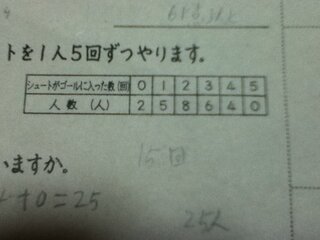 トを1人5回ずつやります。
シュートがゴールに入った数(回) 0 1 2 3 4 5
人数(人) 2 5 8 6 4 0
いますか。
15回
+0=25
25人